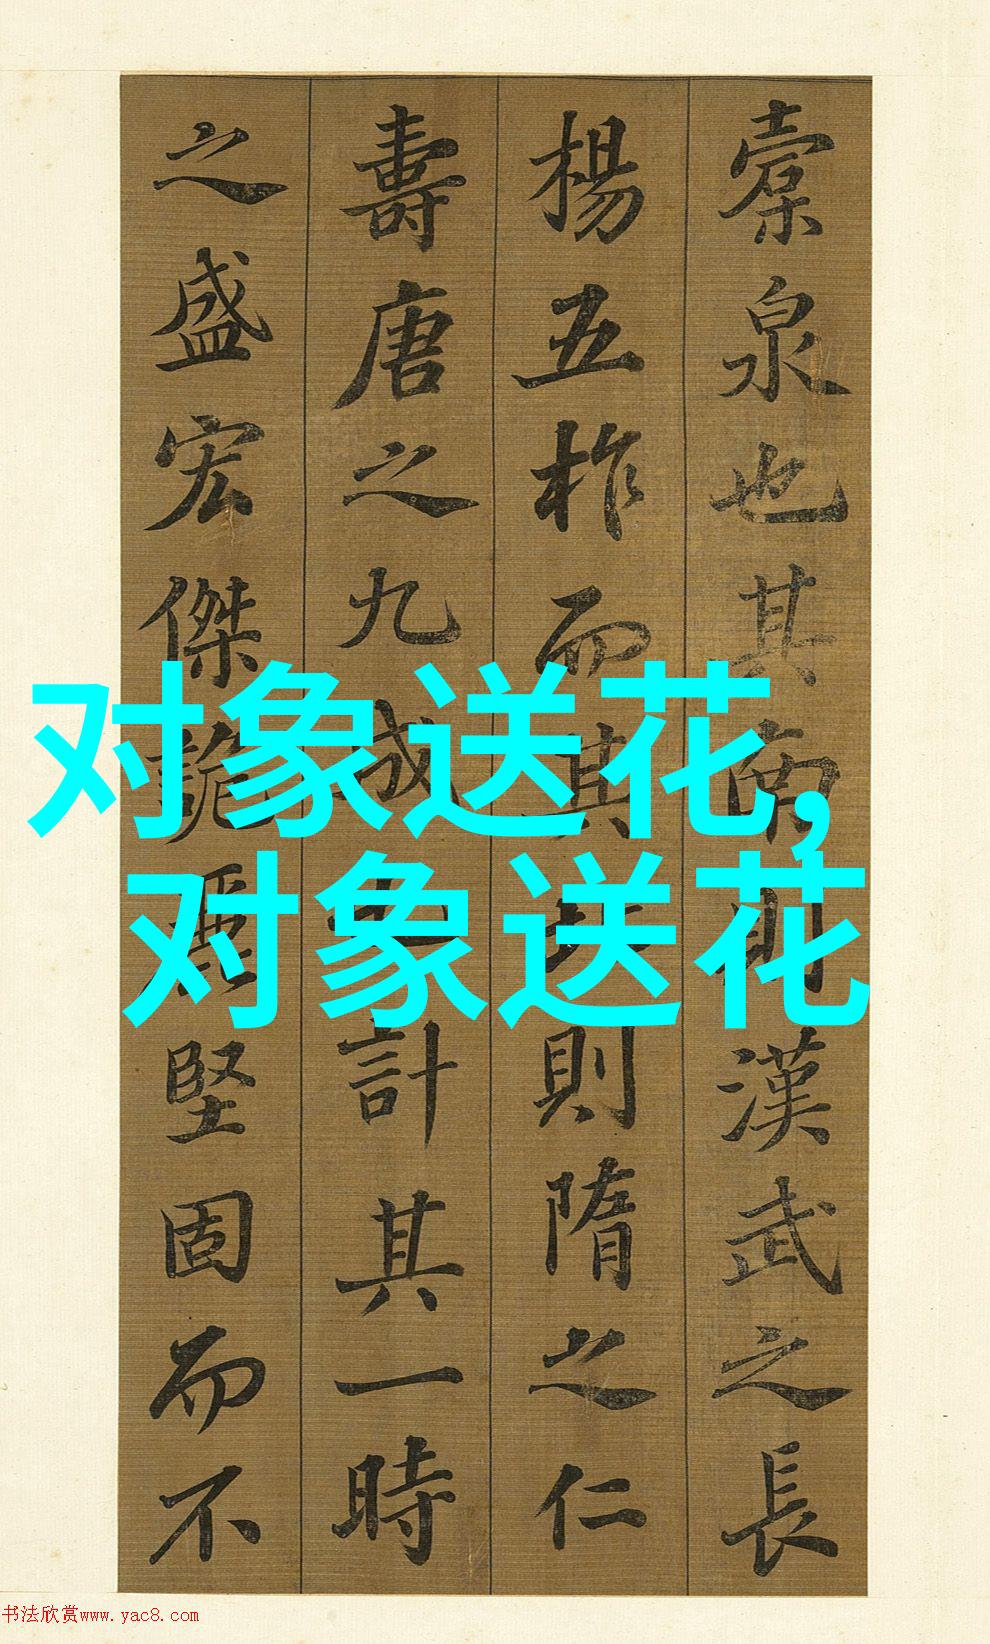 橐泉也其南則漢武之長
楊五柞而其北則隋之仁
壽唐之九成也計其一時
之盛宏傑詭麗堅固而不
对象送花,
对象送花
书法欣赏www.yac8.com